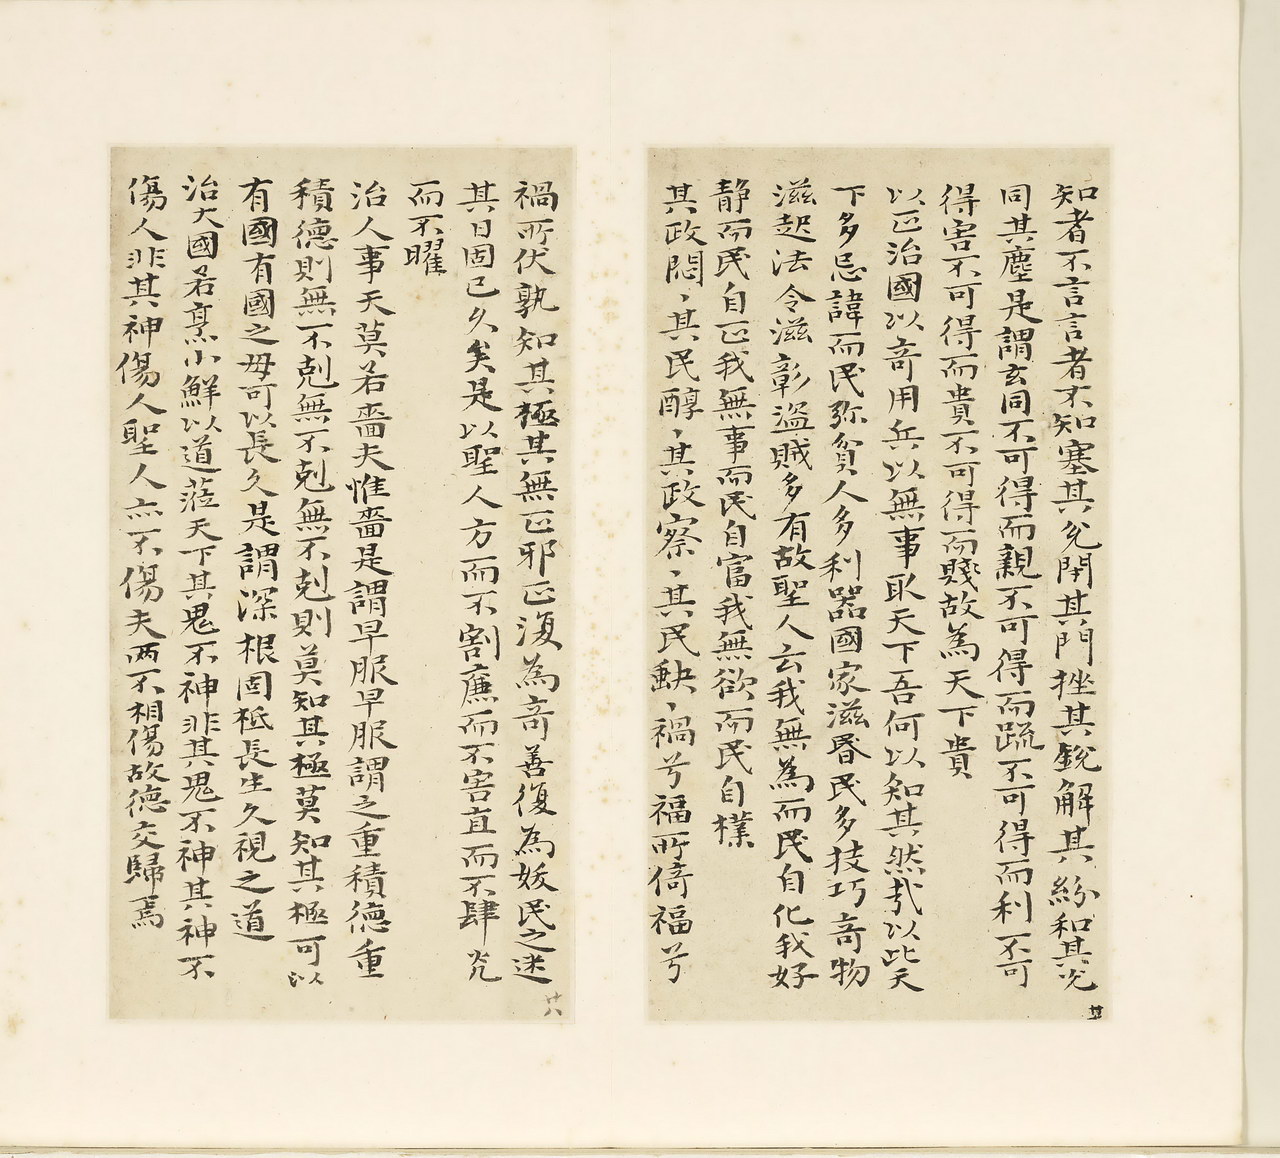 知者不言言者不知塞其兊閇其門挫其銳解其紛和其光
同其塵是謂玄同不可得而親不可得而疏不可得而利不可
得害不可得而貴不可得而賤故為天下貴
以正治國以奇用兵以無事取天下吾何以知其然㦲以此天
下多忌諱而民弥貧人多利器國家滋昬民多技巧奇物
滋起法令滋彰盜賊多有故聖人云我無為而民自化我好
靜而民自正我無事而民自富我無欲而民自樸
其政悶、其民醇、其政察、其民缺、禍兮福所倚福兮
廿五
禍所伏孰知其極其無正邪正復為奇善復為妖民之迷
其日固已久矣是以聖人方而不割廉而不害直而不肆光
而不曜
治人事天莫若嗇夫惟嗇是謂早服早服謂之重積德重
積德則無不剋無不剋無不剋則莫知其極莫知其極可以
有國有國之母可以長久是謂深根固柢長生久視之道
治大國若烹小鮮以道蒞天下其鬼不神非其鬼不神其神不
傷人非其神傷人聖人亦不傷夫兩不相傷故德交歸焉
廿六